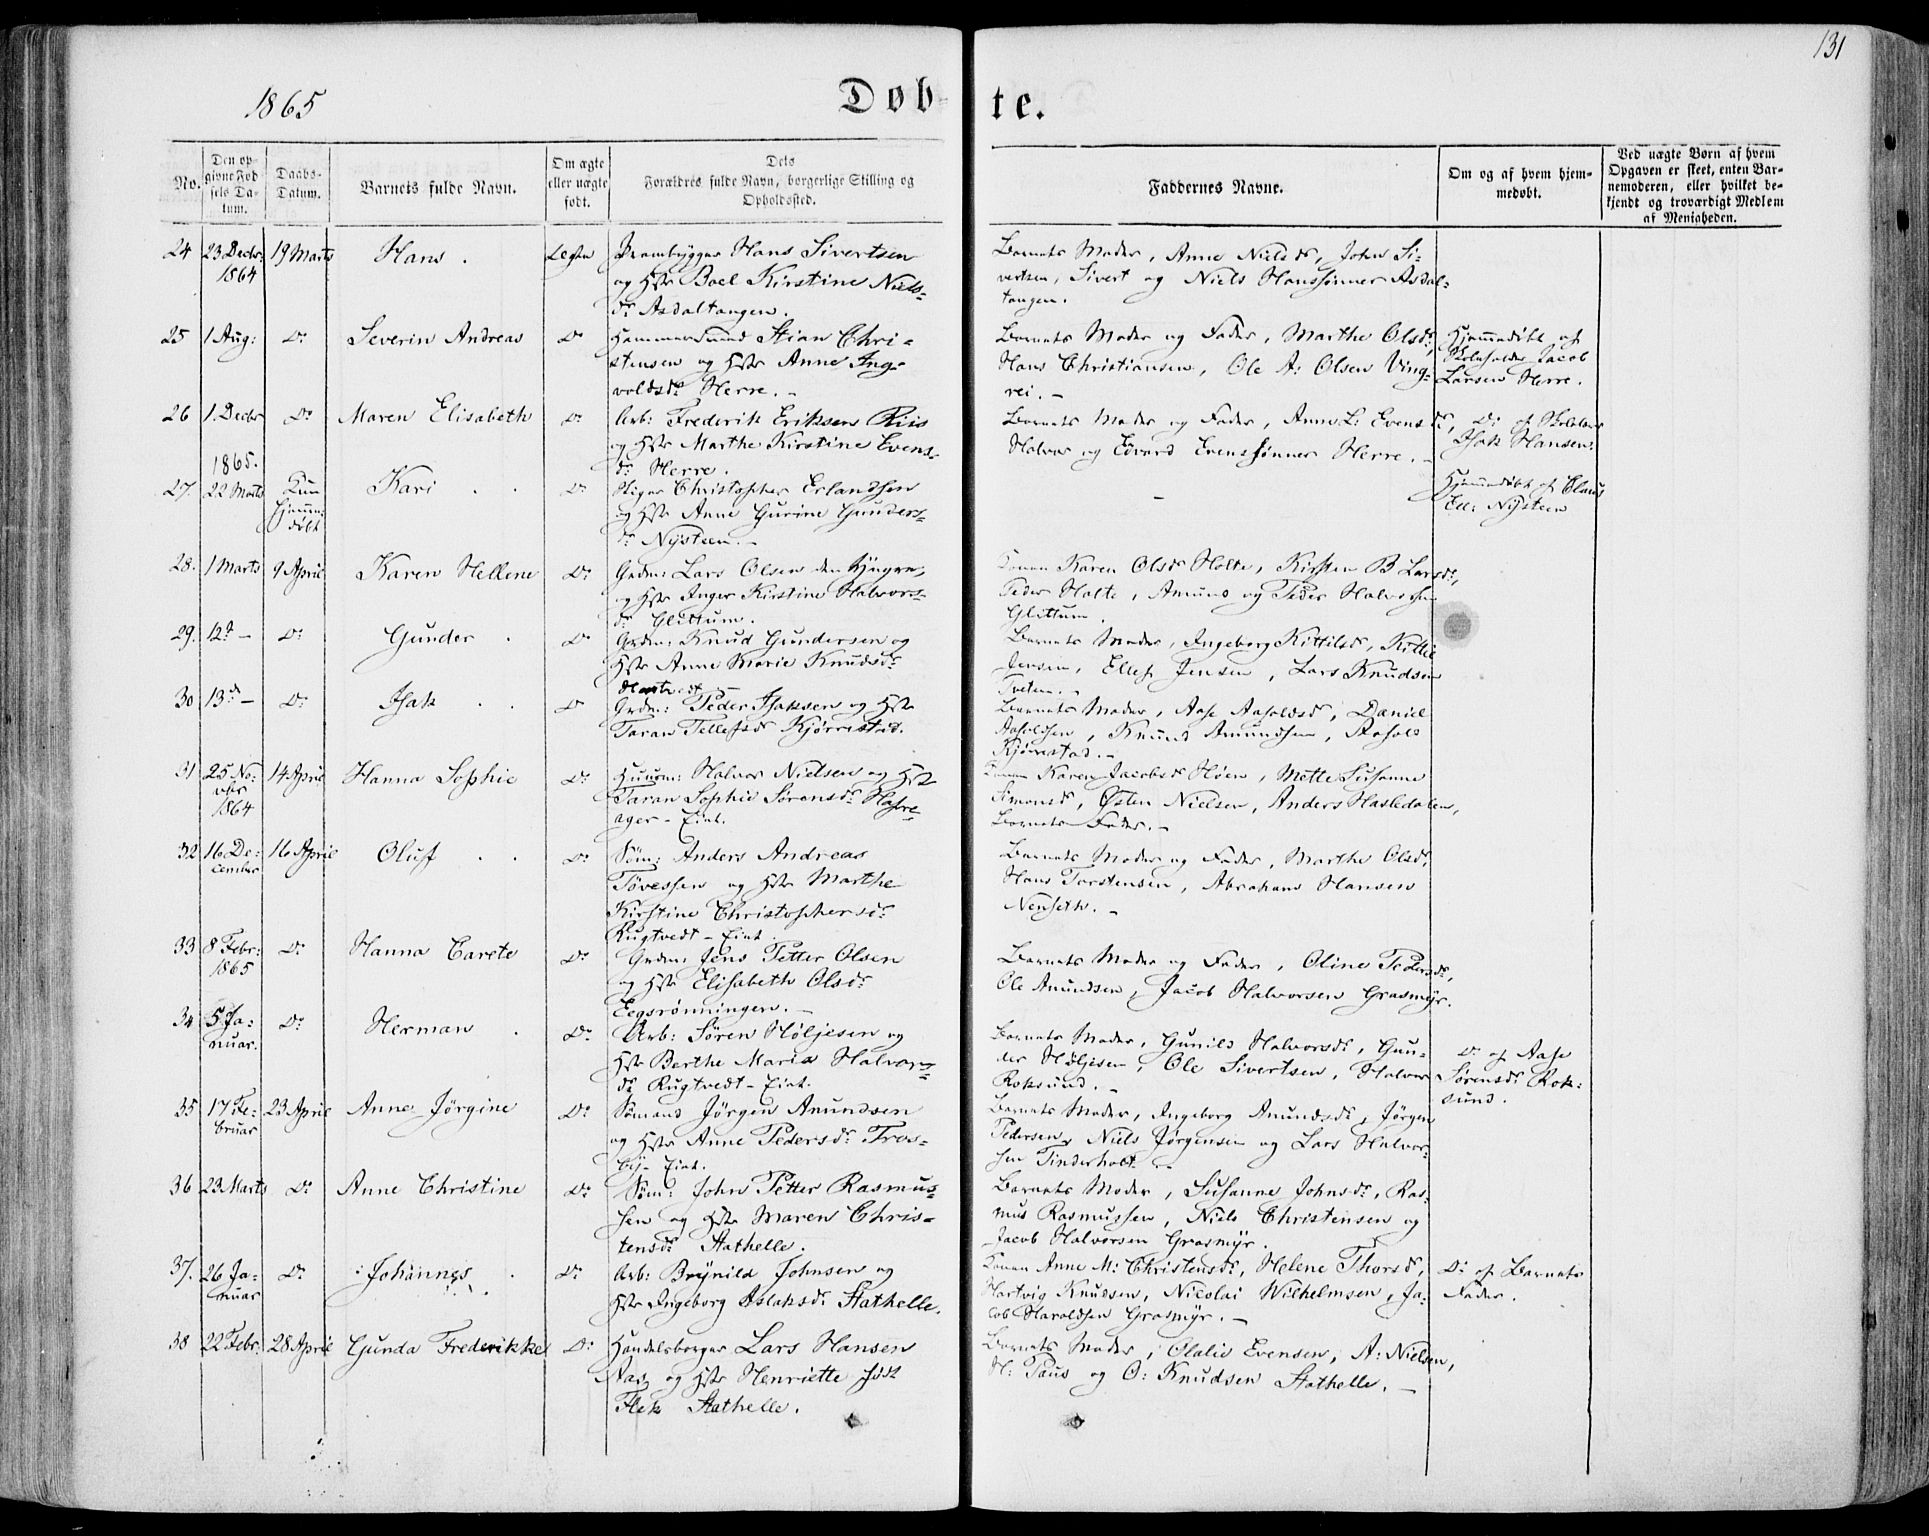 131
1865
Døb-te.
No.
Den op-
givne Fød
sels Da-
tum.
Daabs-
Datum.
Barnets fulde Navn.
Om ægte
eller uægte
født.
Dets
Forældres fulde Navn, borgerlige Stilling og
Opholdssted.
Faddernes Navne.
Om og af hvem hjem-
medøbt.
Ved uægte Børn af hvem
Opgaven er skeet, enten Bar-
nemoderen, eller hvilket be-
kjendt og troværdigt Medlem
af Menigheden.
24 23 Decbr. 1864 19 Marts Hans. Ægte
Prambygger Hans Sivertsen
og Hst Boel Kirstine Niels-
dr Asdaltangen.
Barnets Moder, Anne Nielsdr, John Si-
vertsen, Sivert og Niels Hanssønner Asdal-
tangen.
25 1 Aug: Do Severin Andreas Do
Hammersmed Stian Chri-
stensen og Hst Anne Ing-
voldsdr Herre. -
Barnets Moder og Fader, Marthe Olsdr,
Hans Christiansen, Ole A: Olsen Ving-
rei. -
Hjemmedøbt af
Skoleholder Jacob
Larsen Herre.
26 1. Decbr Do Maren Elisabeth Do
Arb: Frederik Eriksen Riis
og Hst Marthe Kirstine Evens-
dr Herre.
Barnets Moder og Fader, Anne L: Evensdr,
Halvor og Edvard Evenssønner Herre. -
Do af
Isak Hansen.
1865.
27. 22 Marts Kun
hjemme-
døbt Kari Do
Christopher Erlandsen
og Hst Anne Gurine Gunders-
dr Nysteen. -
-
Hjemmedøbt af Claus
Ell: Nysteen
28. 1 Marts 9 April Karen Hellene Do
Grdm: Lars Olsen den Yngre,
og Hst Inger Kirstine Halvors-
dr Glittum.
Konen Karen Olsdr Holte, Kirsten B Larsdr,
Peder Holte, Amund og Peder Halvorsen
Glittum.
29. 12te - Do Gunder. Do
Grdm: Knud Gundersen og
Hst Anne Marie Knudsdr
Barnets Moder, Ingeborg Kittilsdr, Kittil
Jensen, Ellef Jensen, Lars Knudsen
Tveten. -
30 13de - Do Isak Do
Grdm: Peder Isaksen og Hst
Taran Tellefsdr Kjørrestad.
Barnets Moder, Aase Aasoldsdr, Daniel
Aasoldsen, Knud Amundsen, Aasold
Kjørrestad. -
31 25 No-
vbr
1864 14 April Hanna Sophie Do
Husm: Halvor Nielsen og Hst
Taran Sophie Sørensdr
ager - Eint.
Konen Karen Jacobsdr Høen, Mette Susanne
Simonsdr, Østen Nielsen, Anders Hasledalen,
Barnets Fader. -
32 16 De-
cember 16 April Oluf Do
Søm: Anders Andreas
Tovessen og Hst Marthe
Kirstine Christophersdr
Rugtvedt - Eint.
Barnets Moder og Fader, Marthe Olsdr,
Hans Torstensen, Abraham Hansen
Nenseth. -
33 8 Febr:
1865 Do Hanna Carete Do
Grdm: Jens Petter Olsen
og Hst Elisabeth Olsdr
Eegsrønningen. -
Barnets Moder og Fader, Oline Pedersdr,
Ole Anundsen, Jacob Halvorsen Grasmyr.
34 5 Ja-
nuar. Do Herman. Do
Arb: Søren Høljesen og
Hst Berthe Maria Halvors-
dr Rugtvedt - Eint.
Barnets Moder, Gunild Halvorsdr, Gun-
der Høljesen, Ole Sivertsen, Halvor
Roksund. -
Do af Aase
Sørensdr Rok-
sund.
35 17 Fe-
bruar 23 April Anne Jørgine Do
Sømand Jørgen Anundsen
og Hst Anne Pedersdr Tros-
by - Eint.
Barnets Moder, Ingeborg Anundsdr, Jørgen
Pedersen, Niels Jørgensen og Lars Halvor-
sen Tinderholt. -
36 23 Marts Do Anne Christine Do
Søm: John Petter Rasmus-
sen og Hst Maren Chris-
tensdr Stathelle.
Barnets Moder, Susanne Johnsdr, Ras-
mus Rasmussen, Niels Christensen og
Jacob Halvorsen Grasmyr.
37. 26 Ja-
nuar Do Johannes. Do
Arb: Brynild Johnsen og
Hst Ingeborg Aslaksdr Stathelle.
Konen Anne M: Christensdr, Helene Thorsdr,
Hartvig Knudsen, Nicolai Wilhelmsen, Ja-
cob Haraldsen Grasmyr. -
Do af Barnets
Fader.
38 22 Febr. 28 April Gunda Frederikke Do
Handelsborger Lars Hansen
Aas og Hst Henriette født
Flek Stathelle.
Barnets Moder, Olalie Evensen, A: Nielsen,
H: Paus og O: Knudsen Stathelle. -